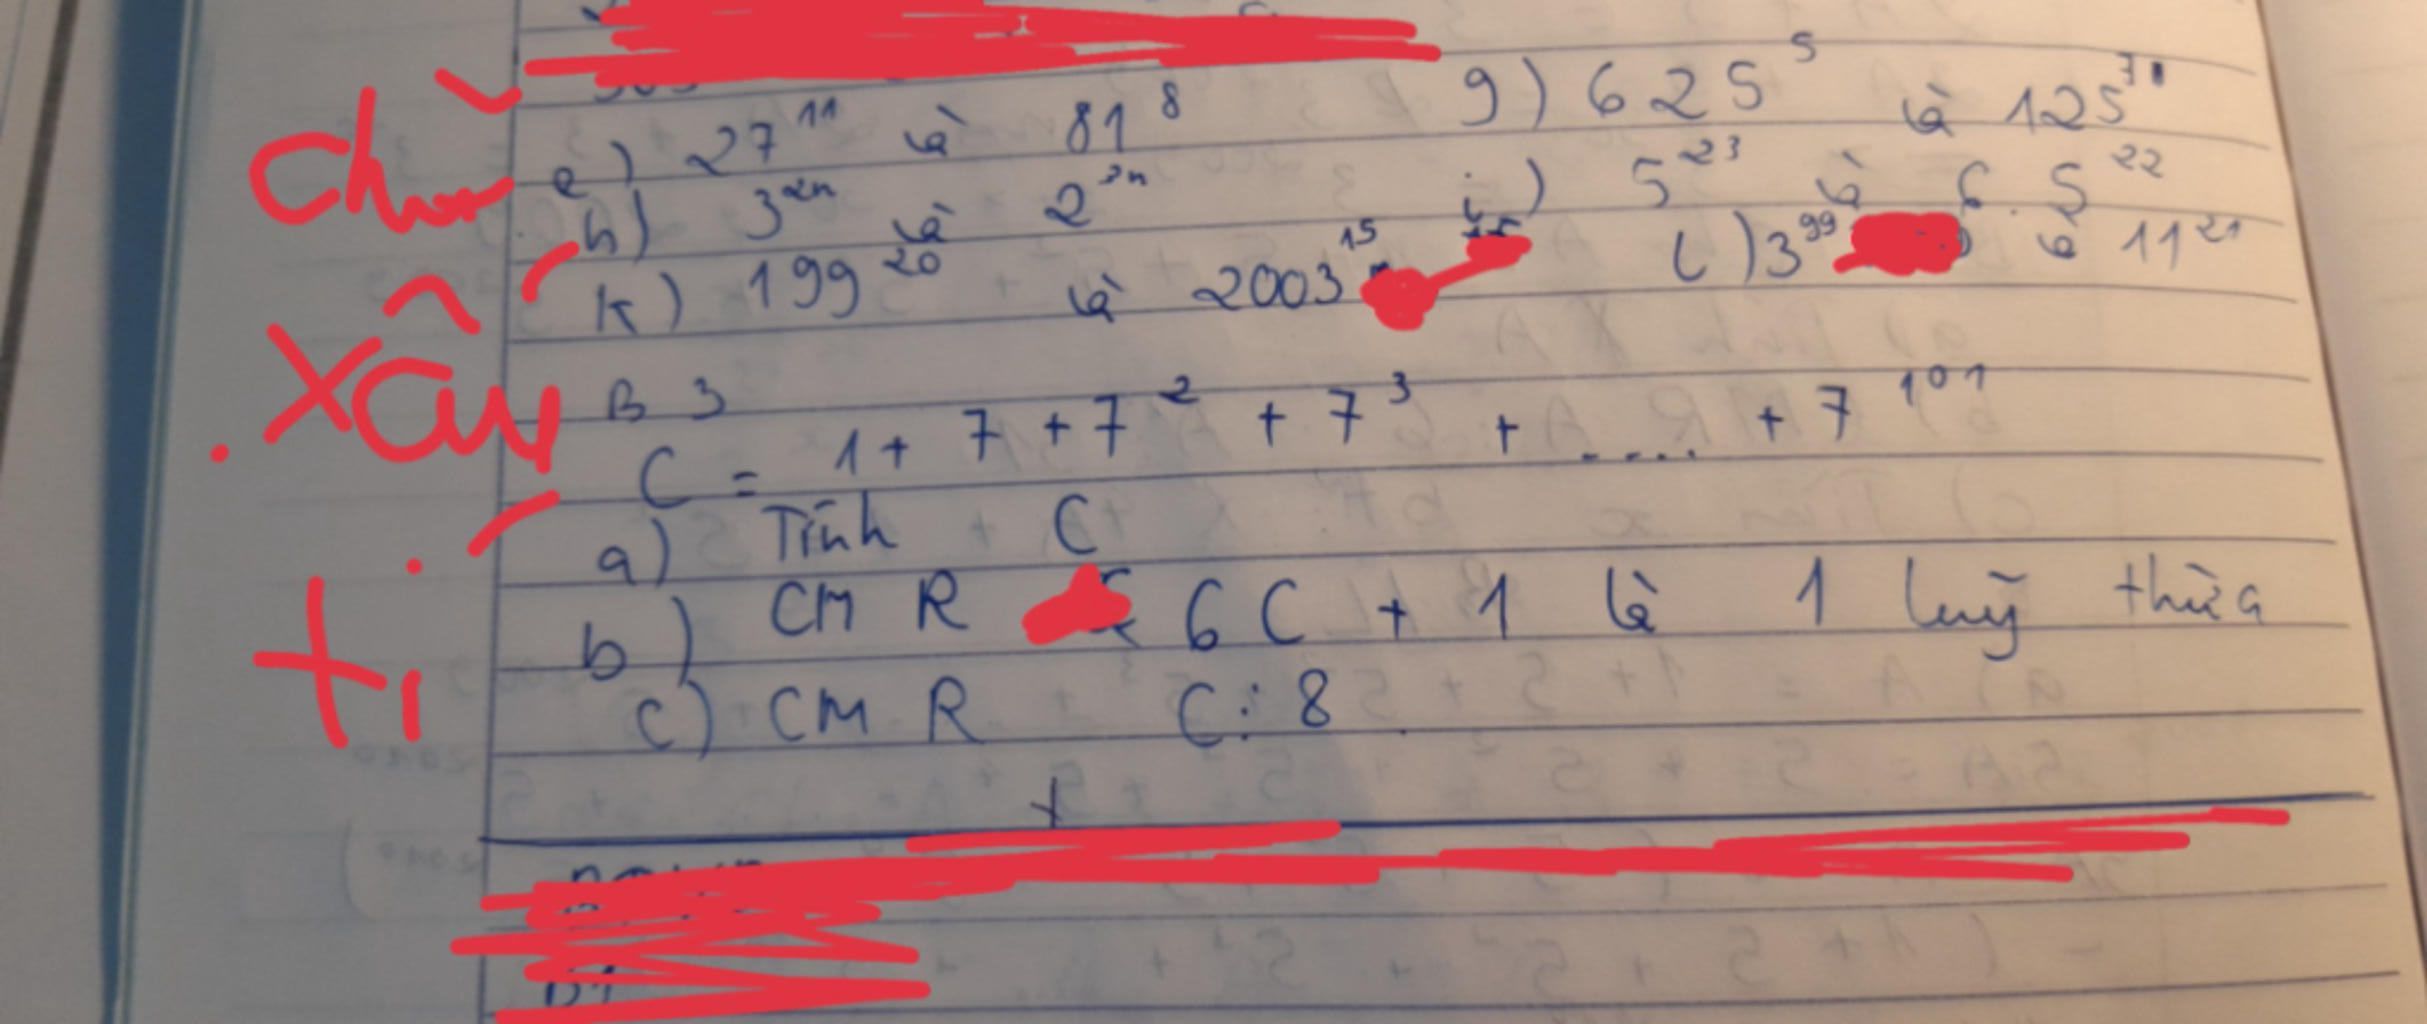 chữ
xấu
tí
e) 27¹¹ và 81⁸ g) 625⁵ và 125⁷
h) 3²ⁿ và 2³ⁿ i) 5²³ và 6.5²²
k) 199²⁰ và 2003¹⁵ l) 3⁹⁹ và 11²¹
B3
C = 1 + 7 + 7² + 7³ + .... + 7¹⁰¹
a) Tính C
b) CMR 6C + 1 là 1 luỹ thừa
c) CMR C ⋮ 8